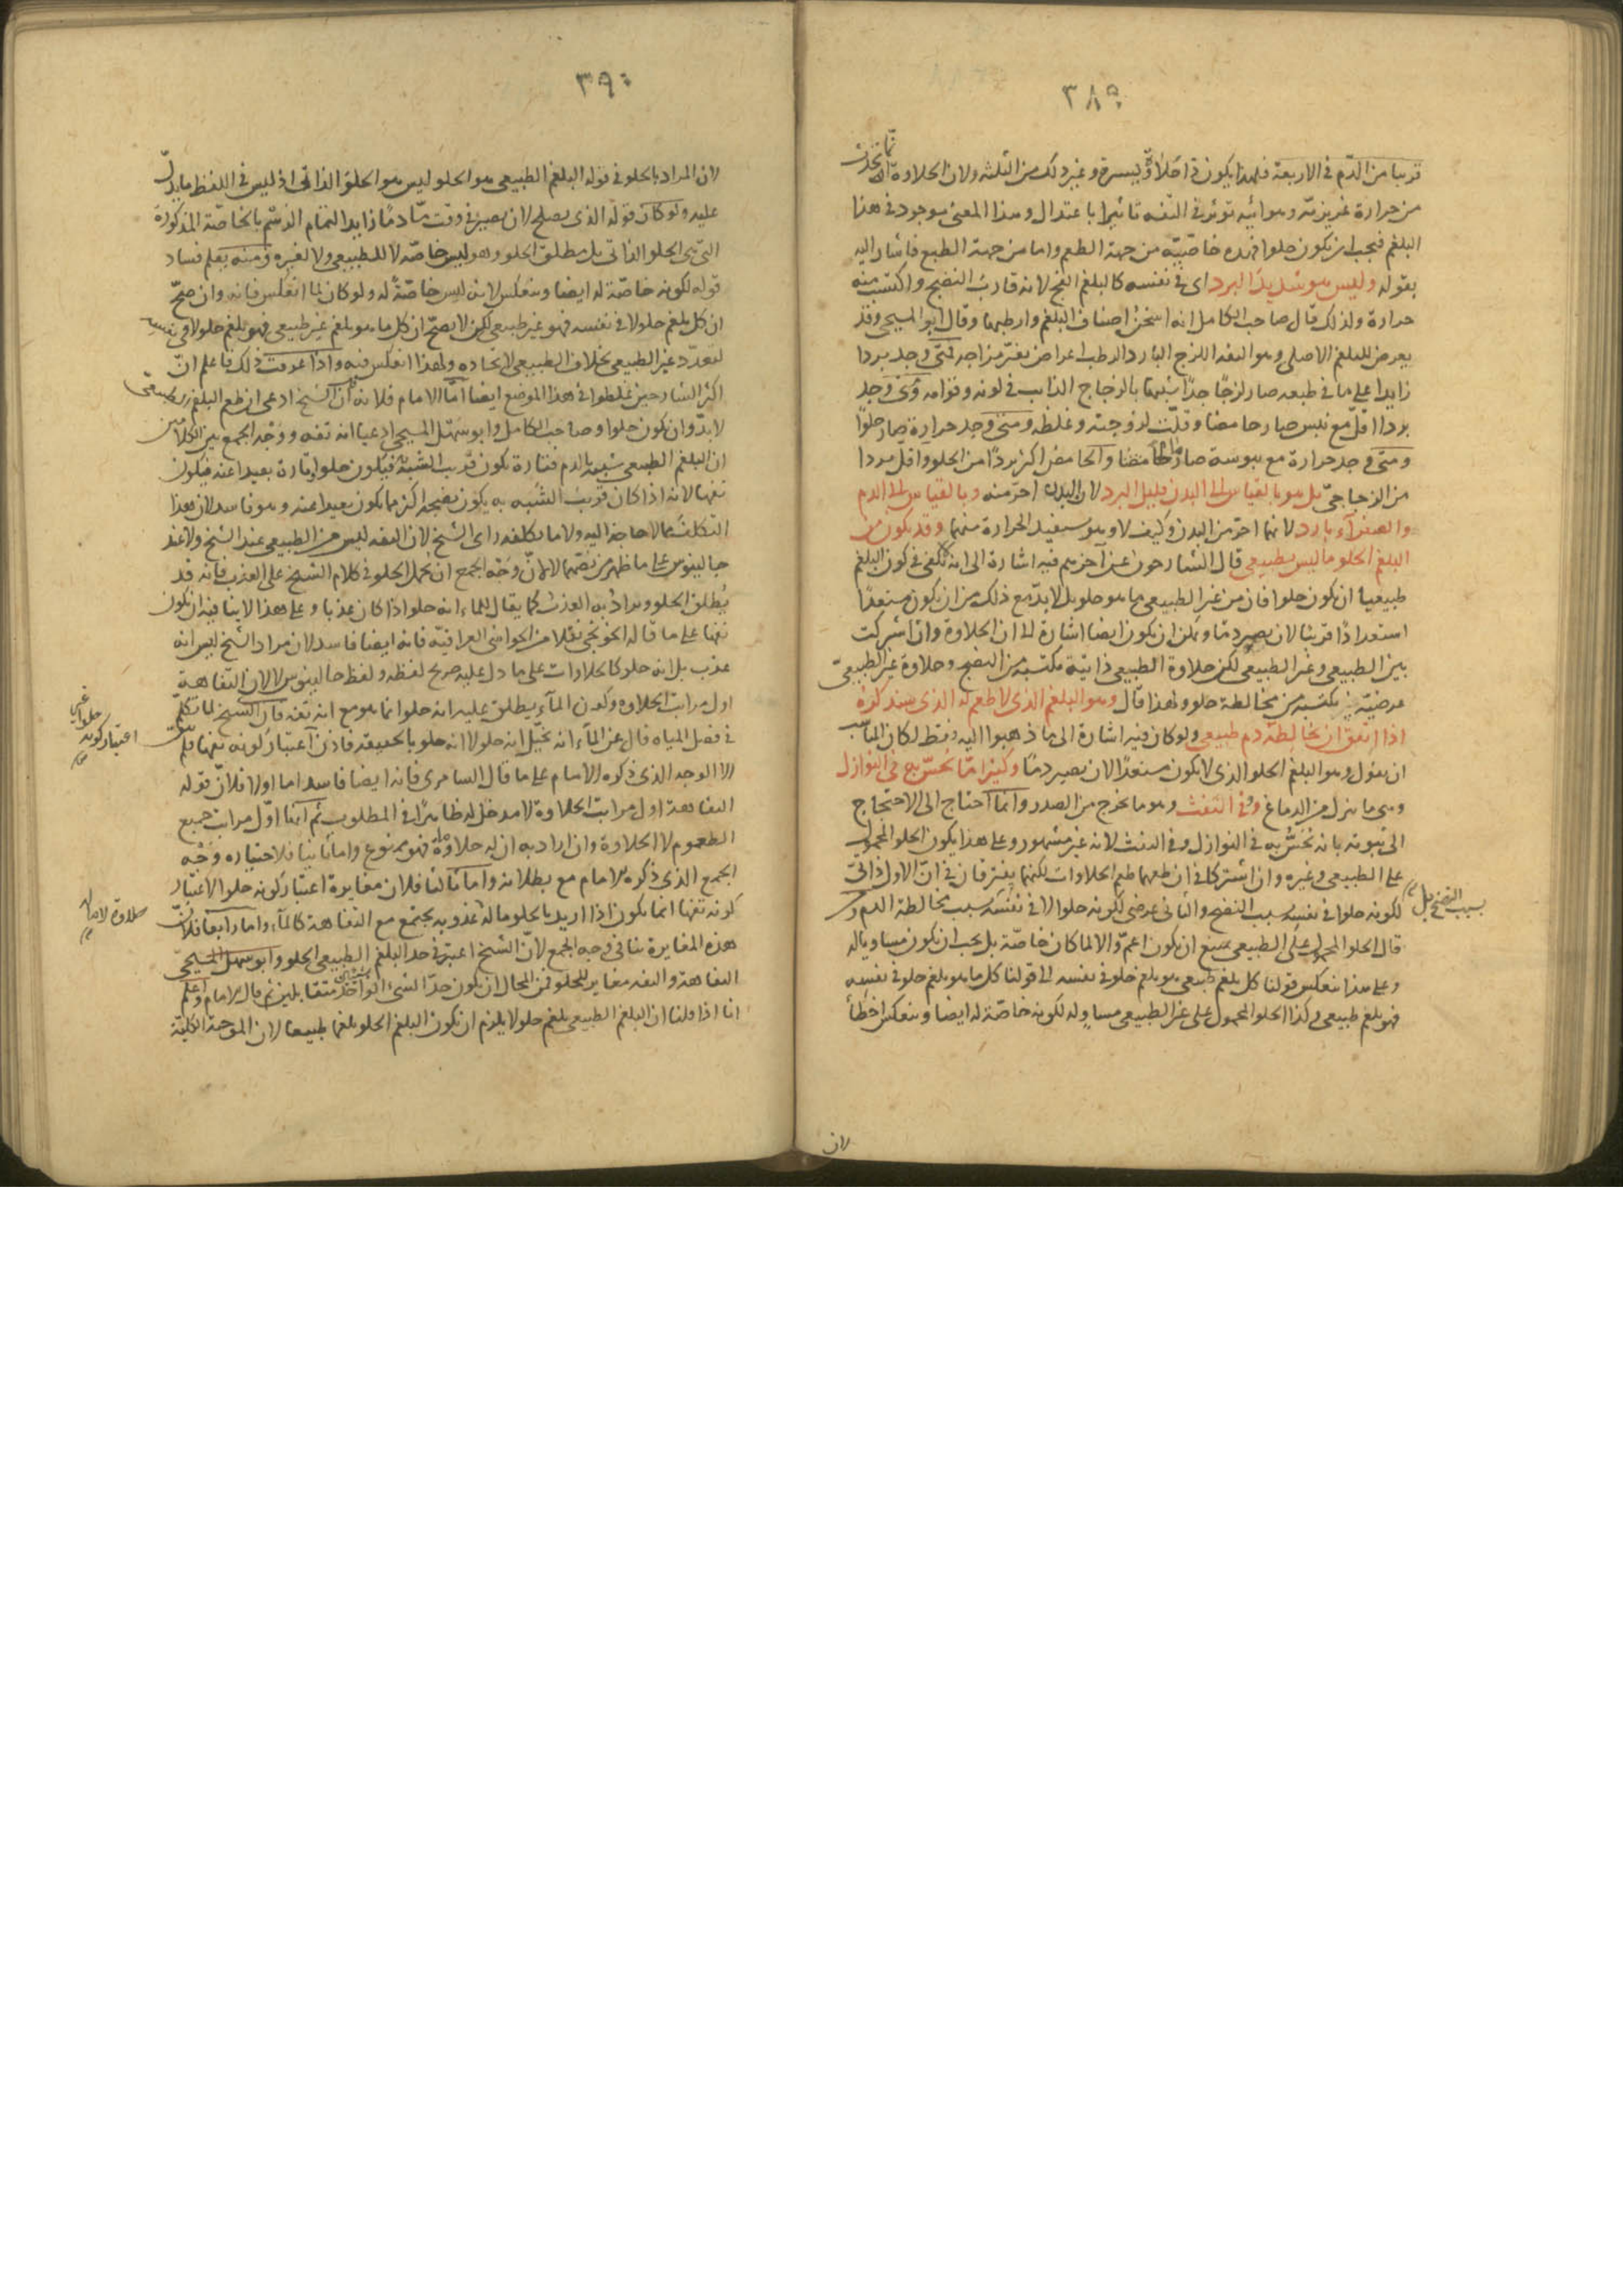 ٣٨٩
قريبا من الدّم في الاربعة فلهذا يكون في اخلاق يسيرة وغير ذلك من الثلثة ولان الحلاوة انما تحدث
من حرارة غريزية وهوائية تؤثر في التفه تاثيرا باعتدال وهذا المعنى موجود في هذا
البلغم فيجب ان يكون حلوا فهذه خاصيّته من جهة الطعم واما من جهة الطبع فاشار اليه
بقوله وليس هو شديد البرد اى في نفسه كالبلغم الفج لانه قارب النضج واكتسب منه
حرارة ولذلك قال صاحب الكامل انه اسخن اصناف البلغم وارطبها وقال ابو المسيحى وقد
يعرض للبلغم الاصلى وهو التفه اللزج البارد الرطب اعراض يغيّر مزاجه فمتى وجد بردا
زايدا على ما في طبعه صار لزجًا جدًا شبيها بالزجاج الذايب في لونه وقوامه ومتى وجد
بردا اقلّ مع يبس صار حامضا وقلّت لزوجته وغلظه ومتى وجد حرارة صار حلوًا
ومتى وجد حرارة مع يبوسة صار مالحا والحامض اكثر بردًا من الحلو واقل بردا
من الزجاجىّ بل هو بالقياس الى البدن قليل البرد لان البدن احرّ منه وبالقياس الى الدم
والصفراء بارد لانهما احرّ من البدن وكيف لا وهو يستفيد الحرارة منهما وقد يكون من
البلغم الحلو ما ليس بطبيعى قال الشارحون عن آخرهم فيه اشارة الى انه لا يكفى في كون البلغم
طبيعيا ان يكون حلوا فان من غير الطبيعى ما هو حلو بل لا بد مع ذلك من ان يكون مستعدًا
استعدادًا قريبا لان يصير دمًا ويمكن ان يكون ايضا اشارة الى ان الحلاوة وان اشتركت
بين الطبيعى وغير الطبيعى لكن حلاوة الطبيعى ذاتية مكتسبة من النضج وحلاوة غير الطبيعىّ
عرضيّة مكتسبة من مخالطة حلو ولهذا قال وهو البلغم الذى لا طعم له الذى سنذكره
اذا اتفق ان خالطه دم طبيعى ولو كان فيه اشارة الى ما ذهبوا اليه فقط لكان المناسب
ان يقول وهو البلغم الحلو الذى لا يكون مستعدًا لان يصير دمًا وكثيرا مّا يُحسّ به في النوازل
وهى ما ينزل من الدماغ وفى النفث وهو ما يخرج من الصدر وانما احتاج الى الاحتجاج
الى ثبوته بانه يحسّ به في النوازل وفى النفث لانه غير مشهور وعلى هذا يكون الحلو المحمول
على الطبيعى وغيره وان اشتركا في ان طعمهما طعم الحلاوات لكنهما يفترقان في انّ الاول ذاتىّ
لكونه حلوا في نفسه بسبب النضج والثانى عرضى لكونه حلوا لا في نفسه بسبب النضج بل بسبب مخالطة الدم
قال الحلو المحمول على الطبيعى يمتنع ان يكون اعمّ والا لما كان خاصّة بل يجب ان يكون مساويا له
وعلى هذا ينعكس قولنا كل بلغم طبيعى هو بلغم حلو في نفسه الى قولنا كل ما هو بلغم حلو في نفسه
فهو بلغم طبيعى وكذا الحلو المحمول على غير الطبيعى مساوٍ له لكونه خاصّة له ايضا وينعكس اخطأ
لان
٣٩٠
لان المراد بالحلو في قوله البلغم الطبيعى هو الحلو ليس هو الحلو الذاتى اذ ليس في اللفظ ما يدلّ
عليه ولو كان قوله الذى يصلح لان يصير في وقت مّا دمًا زايدا لتمام الرسم بالخاصّة المذكورة
التى هى الحلو الذاتى بل مطلق الحلو وهو ليس خاصّة لا للطبيعى ولا لغيره ومنه يعلم فساد
قوله لكونه خاصّة له ايضا وينعكس لانه ليس خاصّةً له ولو كان لما انعكس فانه وان صحّ
ان كل بلغم حلو لا في نفسه فهو غير طبيعى لكن لا يصحّ ان كل ما هو بلغم غير طبيعى فهو بلغم حلو لا في نفسه
لتعدّد غير الطبيعى بخلاف الطبيعى لاتحاده ولهذا انعكس فيه واذا عرفت ذلك فاعلم انّ
اكثر الشارحين غلطوا في هذا الموضع ايضا امّا الامام فلانه ظن ان الشيخ ادعى ان طعم البلغم الطبيعى
لا بدّ وان يكون حلوا وصاحب الكامل وابو سهل المسيحى ادعيا انه تفه ووجه الجمع بين الكلامين
ان البلغم الطبيعى شبيه بالدم فتارة يكون قريب الشبه فيكون حلوا وتارة بعيدا عنه فيكون
تفها لانه اذا كان قريب الشبه به يكون نضجه اكثر مما يكون بعيدا عنه وهو فاسد لان هذا
التكلف مما لا حاجة اليه ولا ما يكلفه راى الشيخ لان التفه ليس من الطبيعى عند الشيخ ولا عند
جالينوس على ما ظهر من نصّهما لا لانّ وجه الجمع ان يحمل الحلو في كلام الشيخ على العذب فانه قد
يُطلق الحلو ويراد به العذب كما يقال للماء انه حلو اذا كان عذبا وعلى هذا لا ينافيه ان يكون
تفها على ما قاله الخونجى نقلا من الحواشى العراقيّة فانه ايضا فاسد لان مراد الشيخ ليس انه
عذب بل انه حلو كالحلاوات على ما دل عليه صريح لفظه ولفظ جالينوس لا لان التفاهة
اول مراتب الحلاوة وكون الماء يطلق عليه انه حلو انما هو مع انه تفه فان الشيخ لما تكلّم
في فصل المياه قال عن الماء انه تخيّل انه حلو لا انه حلو بالحقيقة فاذن اعتبار كونه تفها
غير اعتبار كونه حلوا
الا الوجه الذى ذكره الامام على ما قال السامرى فانه ايضا فاسد اما اولا فلانّ قوله
التفاهة اول مراتب الحلاوة لا مدخل له ظاهرًا في المطلوب ثم انها اوّل مراتب جميع
الطعوم لا الحلاوة وان اراد به ان له حلاوة ما فهو ممنوع واما ثانيا فلاختياره وجه
الجمع الذى ذكره الامام مع بطلانه واما ثالثا فلان مغايرة اعتبار كونه حلوا لاعتبار
كونه تفها انما يكون اذا اريد بالحلو ما له عذوبة يجتمع مع التفاهة كالماء واما رابعا فلانّ
حلاوة لا ما له
هذه المغايرة تنافى وجه الجمع لانّ الشيخ اعتبر في حد البلغم الطبيعى الحلو وابو سهل المسيحىّ
التفاهة والتفه مغاير للحلو فمن المحال ان يكون حدّا الشىء الواحد متقابلين ثم قال الامام واعلم
انا اذا قلنا ان البلغم الطبيعى بلغم حلو لا يلزم ان يكون البلغم الحلو بلغما طبيعيا لان الموجبة الكليّة